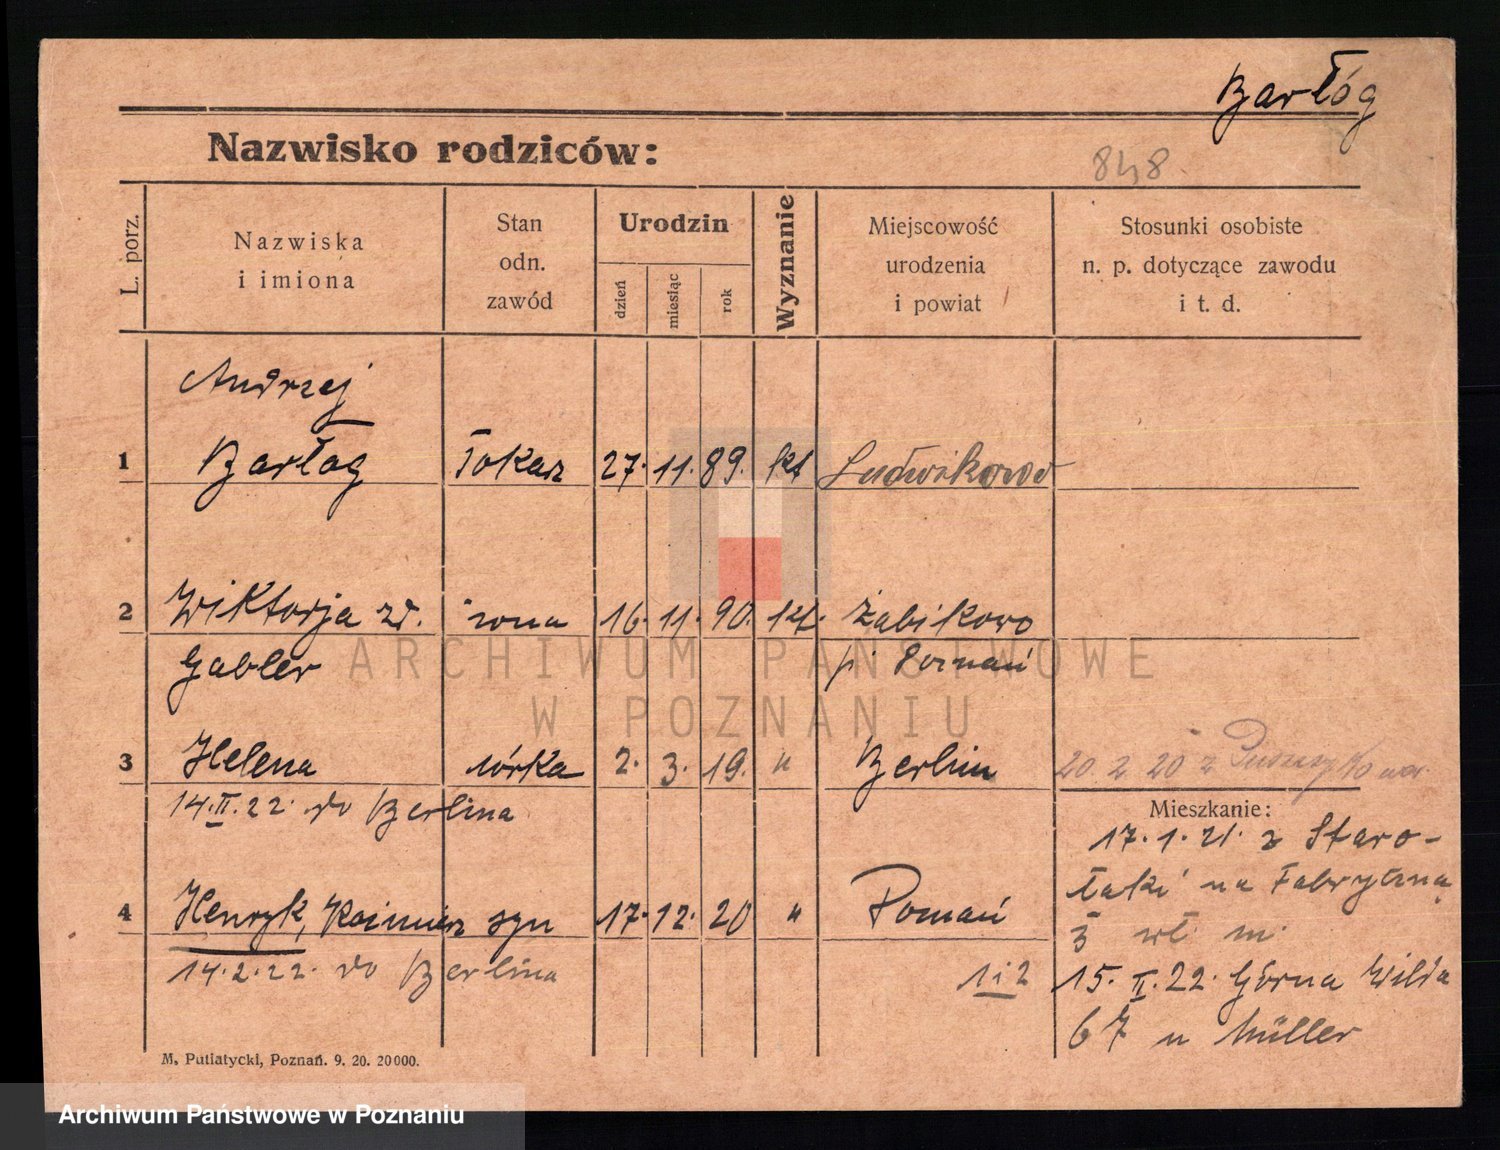 Barłóg
Nazwisko rodziców:
848
L. porz.
Nazwiska
i imiona
Stan
odn.
zawód
Urodzin
dzień
miesiąc
rok
Wyznanie
Miejscowość
urodzenia
i powiat
Stosunki osobiste
n. p. dotyczące zawodu
i t. d.
Andrzej
1 Barłog Tokarz 27. 11. 89. kt Ludwikowo
2 Wiktorja zd. żona 16. 11. 90. kt. Żabikowo
Gabler p. Poznań
3 Helena córka 2. 3. 19. " Berlin 20. 2. 20 z
14.II.22. do Berlina
Mieszkanie:
17.1.21. z Staro-
łęki na Fabryczną
4 Henryk, Kazimierz syn 17. 12. 20 " Poznań
3 wł. m.
14.2.22. do Berlina
1 i 2 15. II. 22. Górna Wilda
67 u Müller
M. Putiatycki, Poznań. 9. 20. 20000.
ARCHIWUM PAŃSTWOWE
W POZNANIU
Archiwum Państwowe w Poznaniu